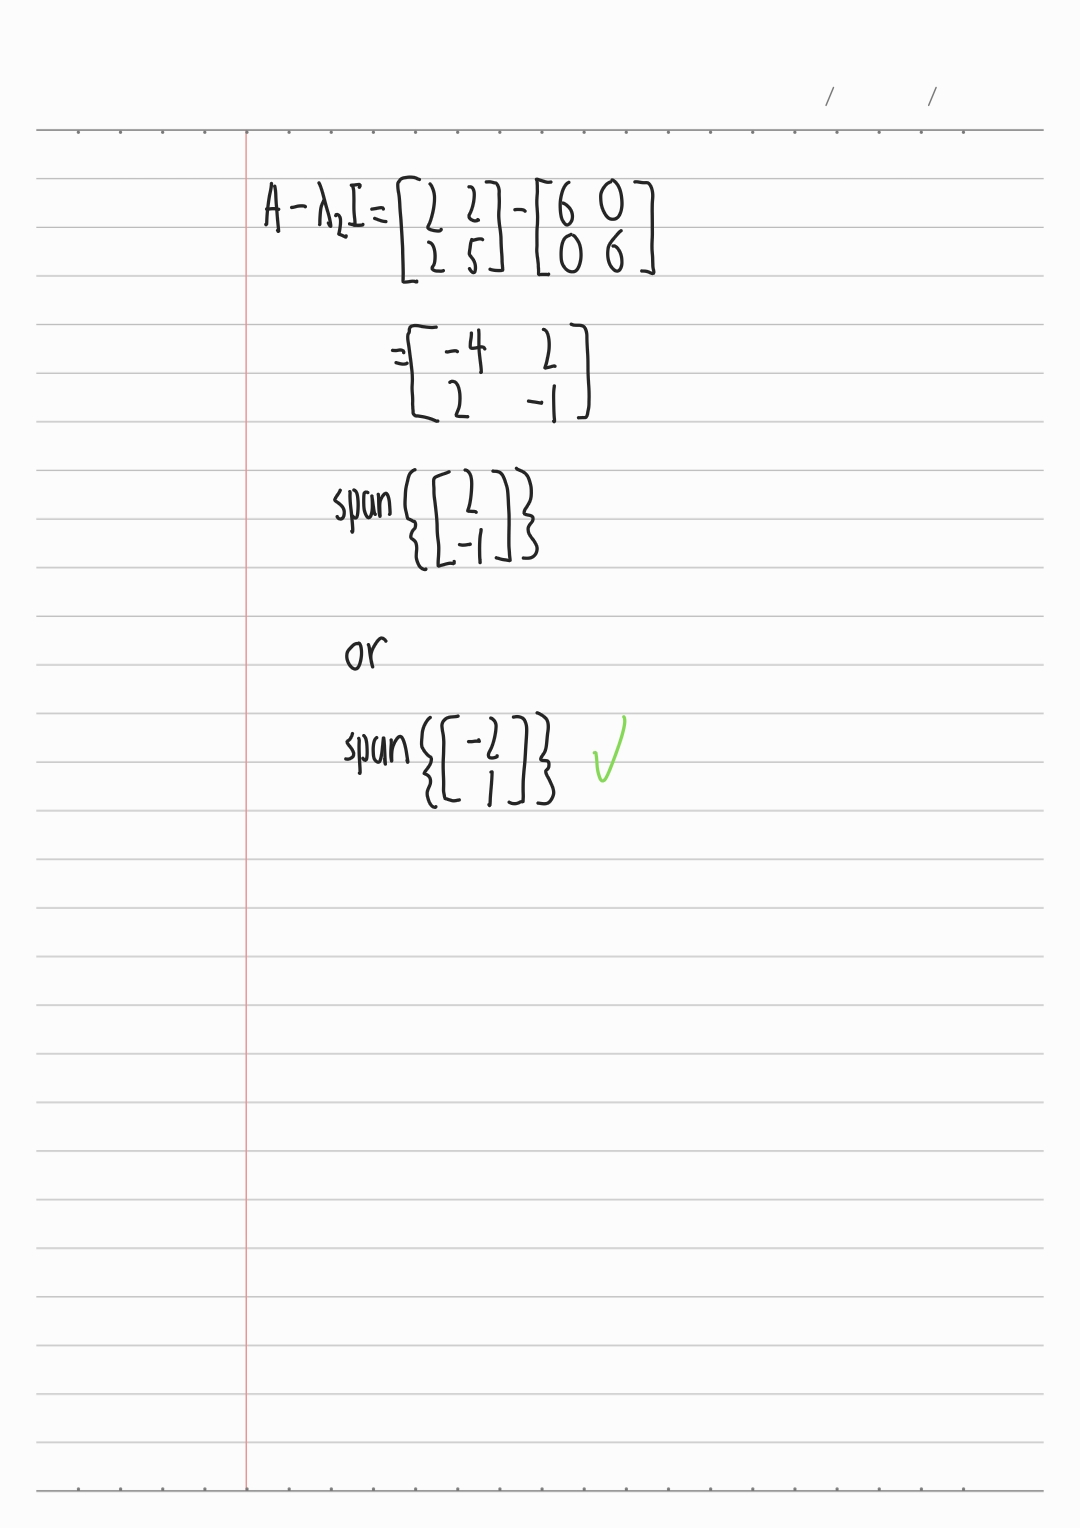 / /
A - λ₂I = [2 2] - [6 0]
[2 5] [0 6]
= [-4 2]
[2 -1]
span {[2]
[-1]}
or
span {[-2]
[1]} ✓